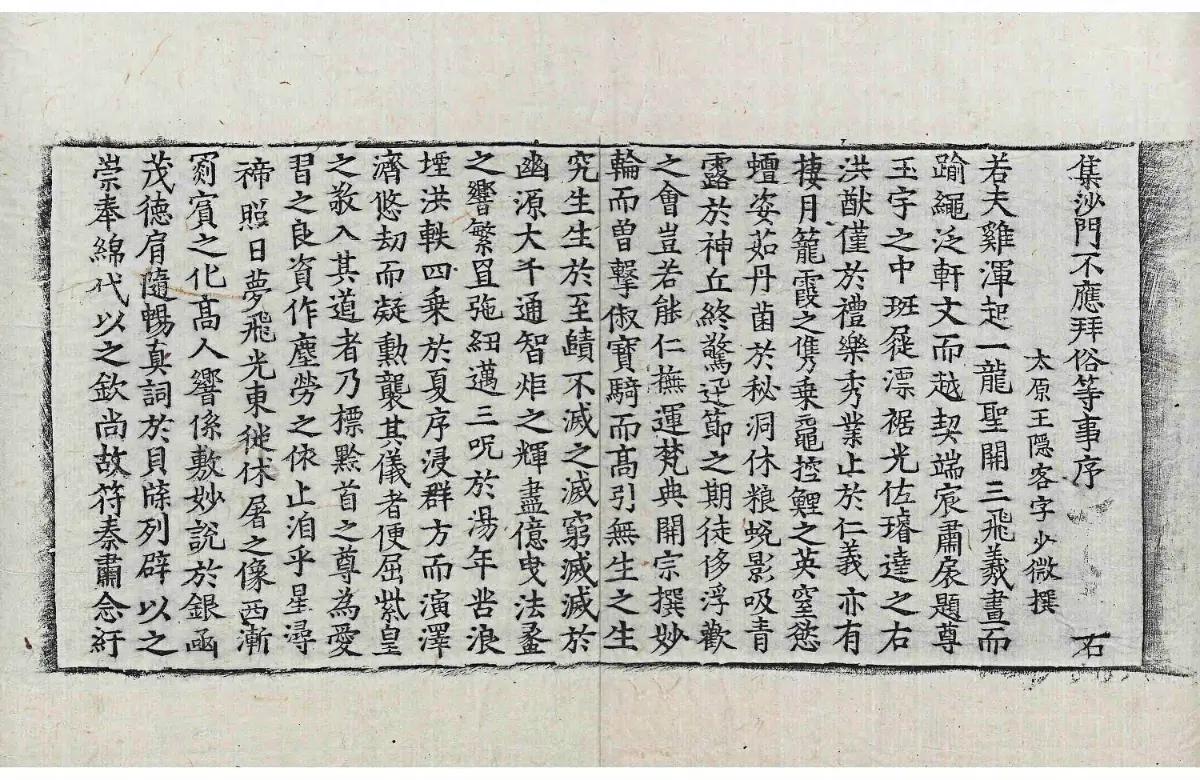 集沙門不應拜俗等事序 右
太原王隱客字少微撰
若夫雞渾起一龍聖開三飛羲畫而
踰繩泛軒文而越契端扆肅展題尊
玉宇之中班屣漂裾光佐璿達之右
洪猷僅於禮樂秀業止於仁義亦有
棲月籠霞之儁乘黿控鯉之英窒慾
蟺姿茹丹菌於秘洞休粮蛻影吸青
露於神丘終驚迂節之期徒侈浮歡
之會豈若能仁撫運梵典開宗撰妙
輪而曾擊俶寶騎而高引無生之生
究生生於至賾不滅之滅窮滅滅於
幽源大千通智炬之輝盡億曳法螽
之響繁罝弛紐邁三呪於湯年沓浪
堙洪軼四乘於夏序浸群方而演澤
濟悠劫而凝勳襲其儀者便屈紫皇
之敬入其道者乃標黔首之尊為愛
習之良資作塵勞之依止洎乎星潯
禘照日夢飛光東徙休屠之像西漸
罽賓之化高人響係敷妙說於銀函
茂德肩隨暢真詞於貝牒列辟以之
崇奉綿代以之欽尚故符秦肅念紆